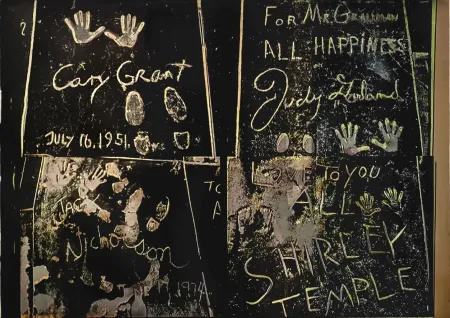 Cary Grant
JULY 16, 1951.
FOR MR GRAUMAN
ALL HAPPINESS
Judy Garland
JACK
Nicholson
1974
LOVE TO YOU
ALL
SHIRLEY
TEMPLE